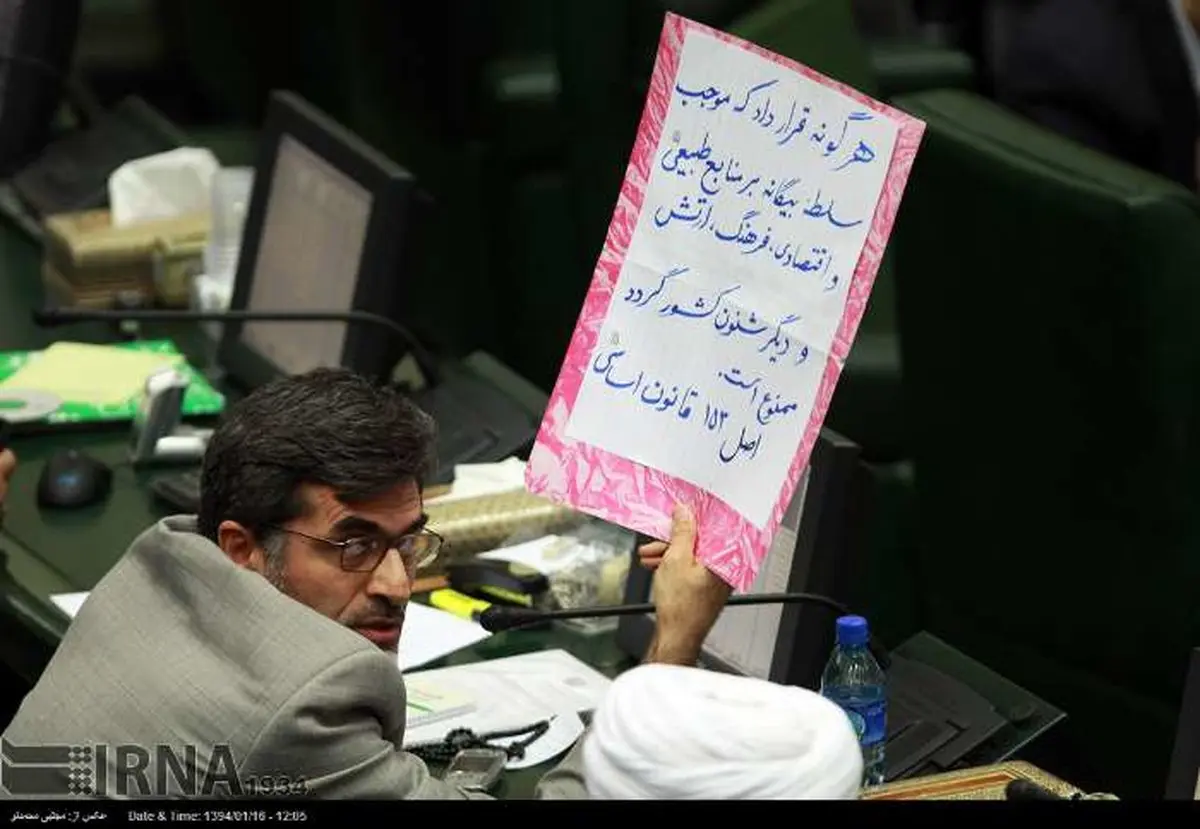 هرگونه قرارداد که موجب
سلطهٔ بیگانه بر منابع طبیعی
و اقتصادی، فرهنگ، ارتش
و دیگر شئون کشور گردد
ممنوع است.
اصل ۱۵۳ قانون اساسی
IRNA
1934
عکس از: مجتبی محمدلو
Date & Time: 1394/01/16 - 12:05